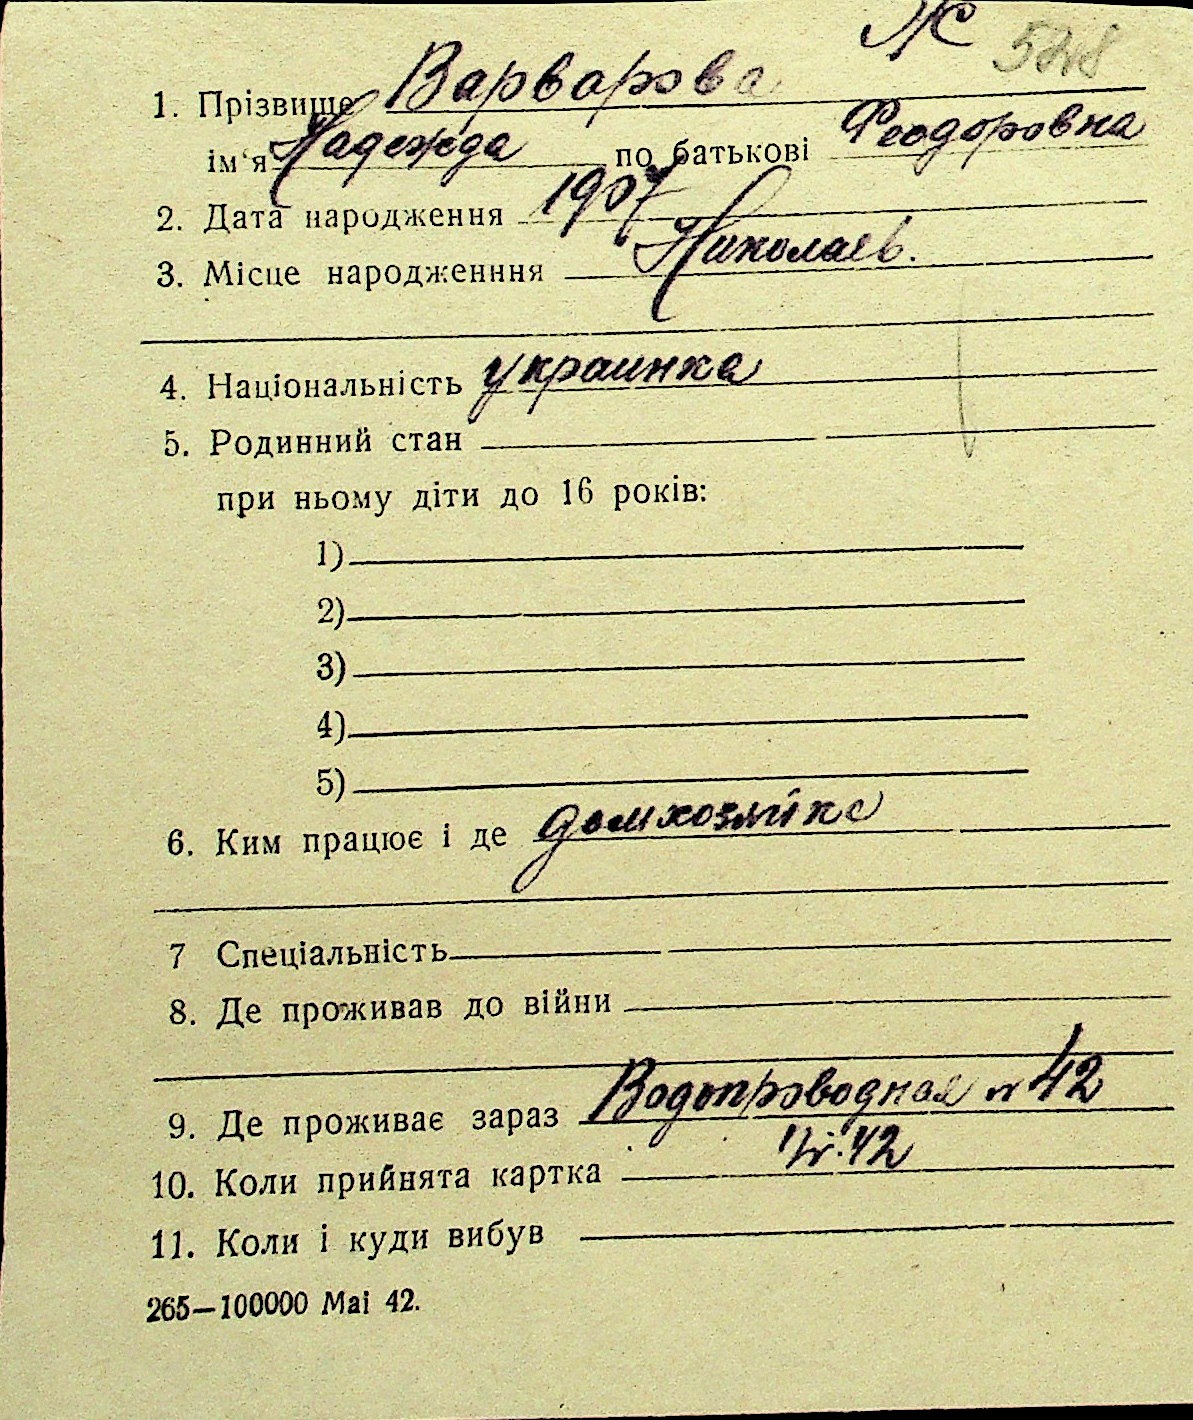 Ж 528
1. Прізвище Варварова
ім‘я Надежда по батькові Феодоровна
2. Дата народження 1907
3. Місце народженння Николаев.
4. Національність украинка
5. Родинний стан
при ньому діти до 16 років:
1)
2)
3)
4)
5)
6. Ким працює і де домхозяйка
7 Спеціальність
8. Де проживав до війни
9. Де проживає зараз Водопроводная № 42
10. Коли прийнята картка
11. Коли і куди вибув
265—100000 Маі 42.